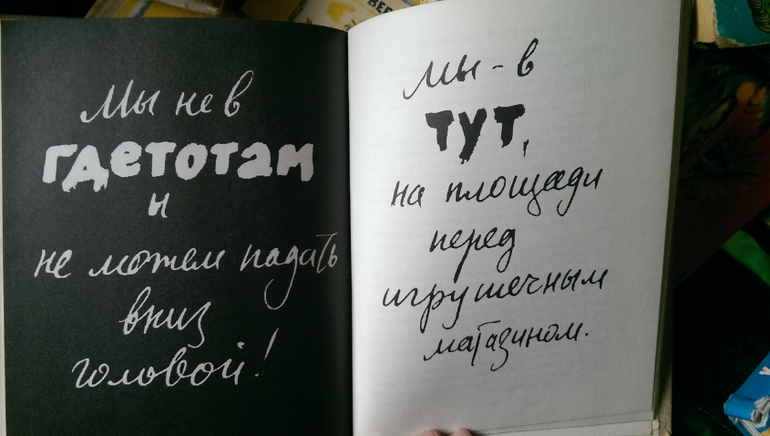 Мы не в
гдетотам
и
не можем падать
вниз
головой!
Мы - в
тут,
на площади
перед
игрушечным
магазином.
ВЕР